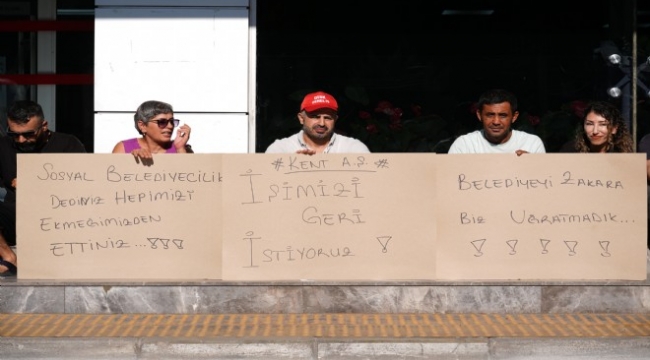 SOSYAL BELEDİYECİLİK
DEDİNİZ HEPİMİZİ
EKMEĞİMİZDEN
ETTİNİZ...!!!
#KENT A.Ş#
İŞİMİZİ
GERİ
İSTİYORUZ !
BELEDİYEYİ ZAKARA
BİZ UĞRATMADIK...
! ! ! ! !